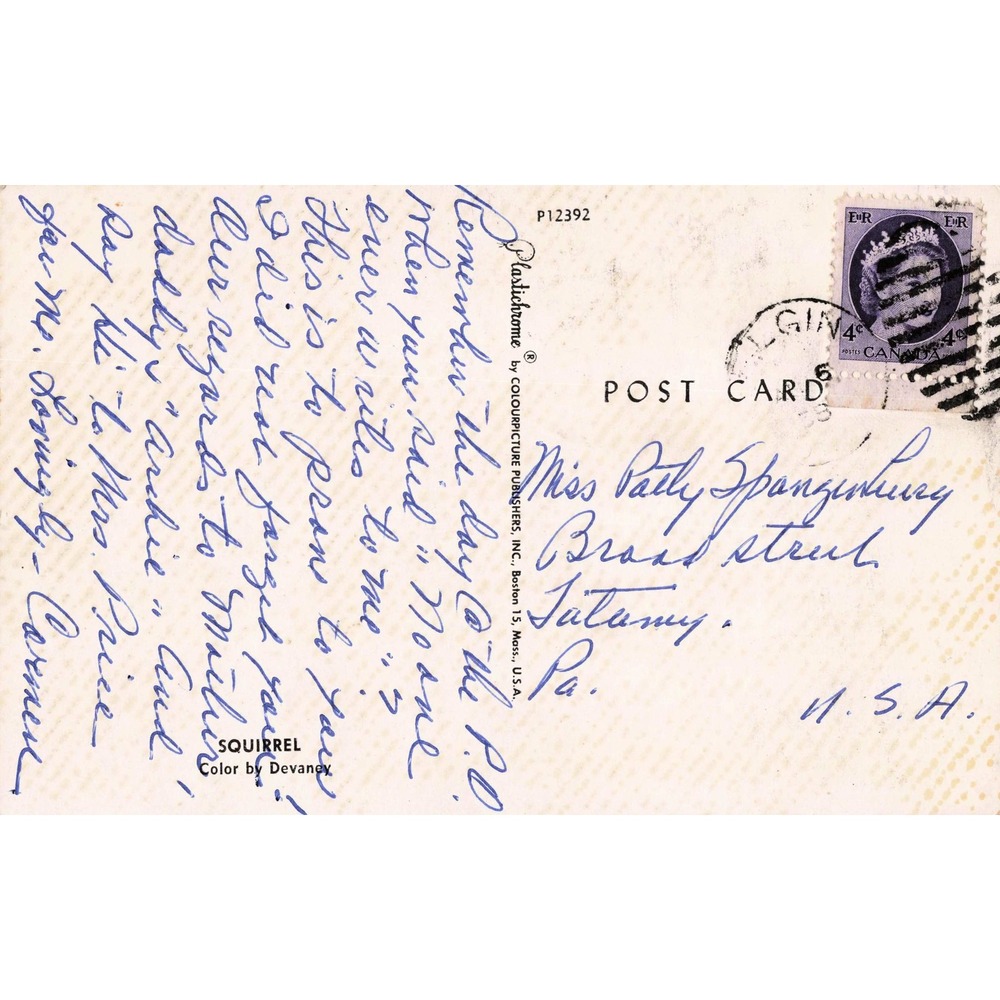 Remember the day @ the P.O.
when you said "No one
ever writes to me"?
This is to prove to you
I did not forget you!
Our regards to Mother,
daddy, "Archie" and
say Hi- to Mrs. Price
for me. Lovingly- Carmen
SQUIRREL
Color by Devaney
Plastichrome ® by COLOURPICTURE PUBLISHERS, INC., Boston 15, Mass., U.S.A.
P12392
POST CARD
EIIR EIIR
4¢ 4¢
POSTES CANADA
LGIN
6
Miss Patty Spangenburg
Broad street
Tatamy.
Pa.
U. S. A.